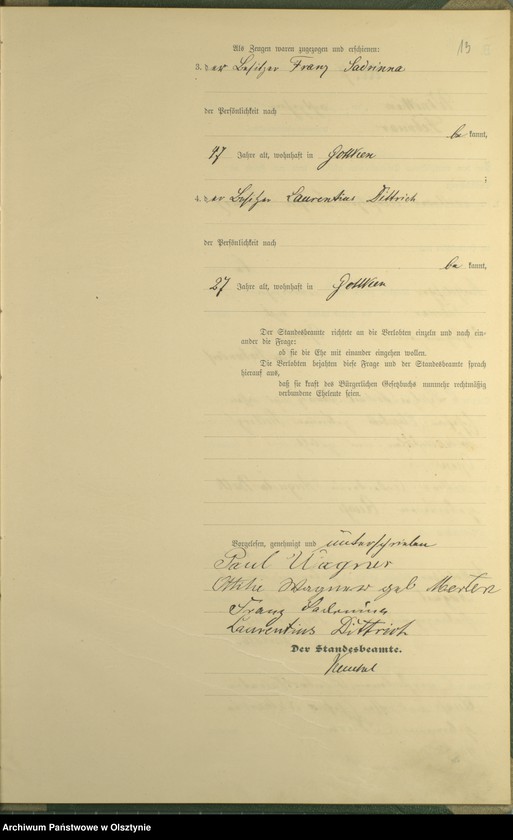 13
Als Zeugen waren zugezogen und erschienen:
3. der Besitzer Franz Sadrinna
der Persönlichkeit nach
be kannt,
47 Jahre alt, wohnhaft in Gottken
;
4. der Besitzer Laurentius Dittrich
der Persönlichkeit nach
be kannt,
27 Jahre alt, wohnhaft in Gottken
Der Standesbeamte richtete an die Verlobten einzeln und nach ein-
ander die Frage:
ob sie die Ehe mit einander eingehen wollen.
Die Verlobten bejahten diese Frage und der Standesbeamte sprach
hierauf aus,
daß sie kraft des Bürgerlichen Gesetzbuchs nunmehr rechtmäßig
verbundene Eheleute seien.
Vorgelesen, genehmigt und unterschrieben
Paul Wagner
Wagner geb Merten
Franz Sadrinna
Laurentius Dittrich
Der Standesbeamte.
Archiwum Państwowe w Olsztynie